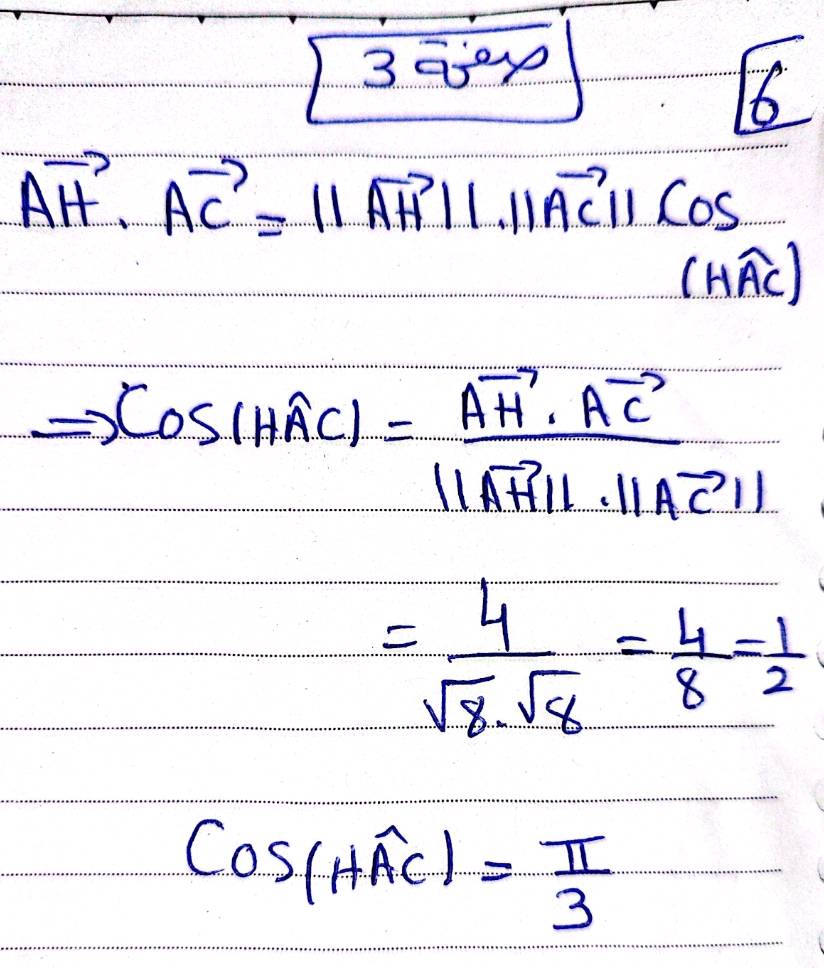 صفحة 3
6
AH⃗ . AC⃗ = ||AH⃗|| . ||AC⃗|| Cos
(HÂC)
⇒ Cos(HÂC) = AH⃗ . AC⃗ / ||AH⃗|| . ||AC⃗||
= 4 / √8 . √8 = 4/8 = 1/2
Cos(HÂC) = π/3